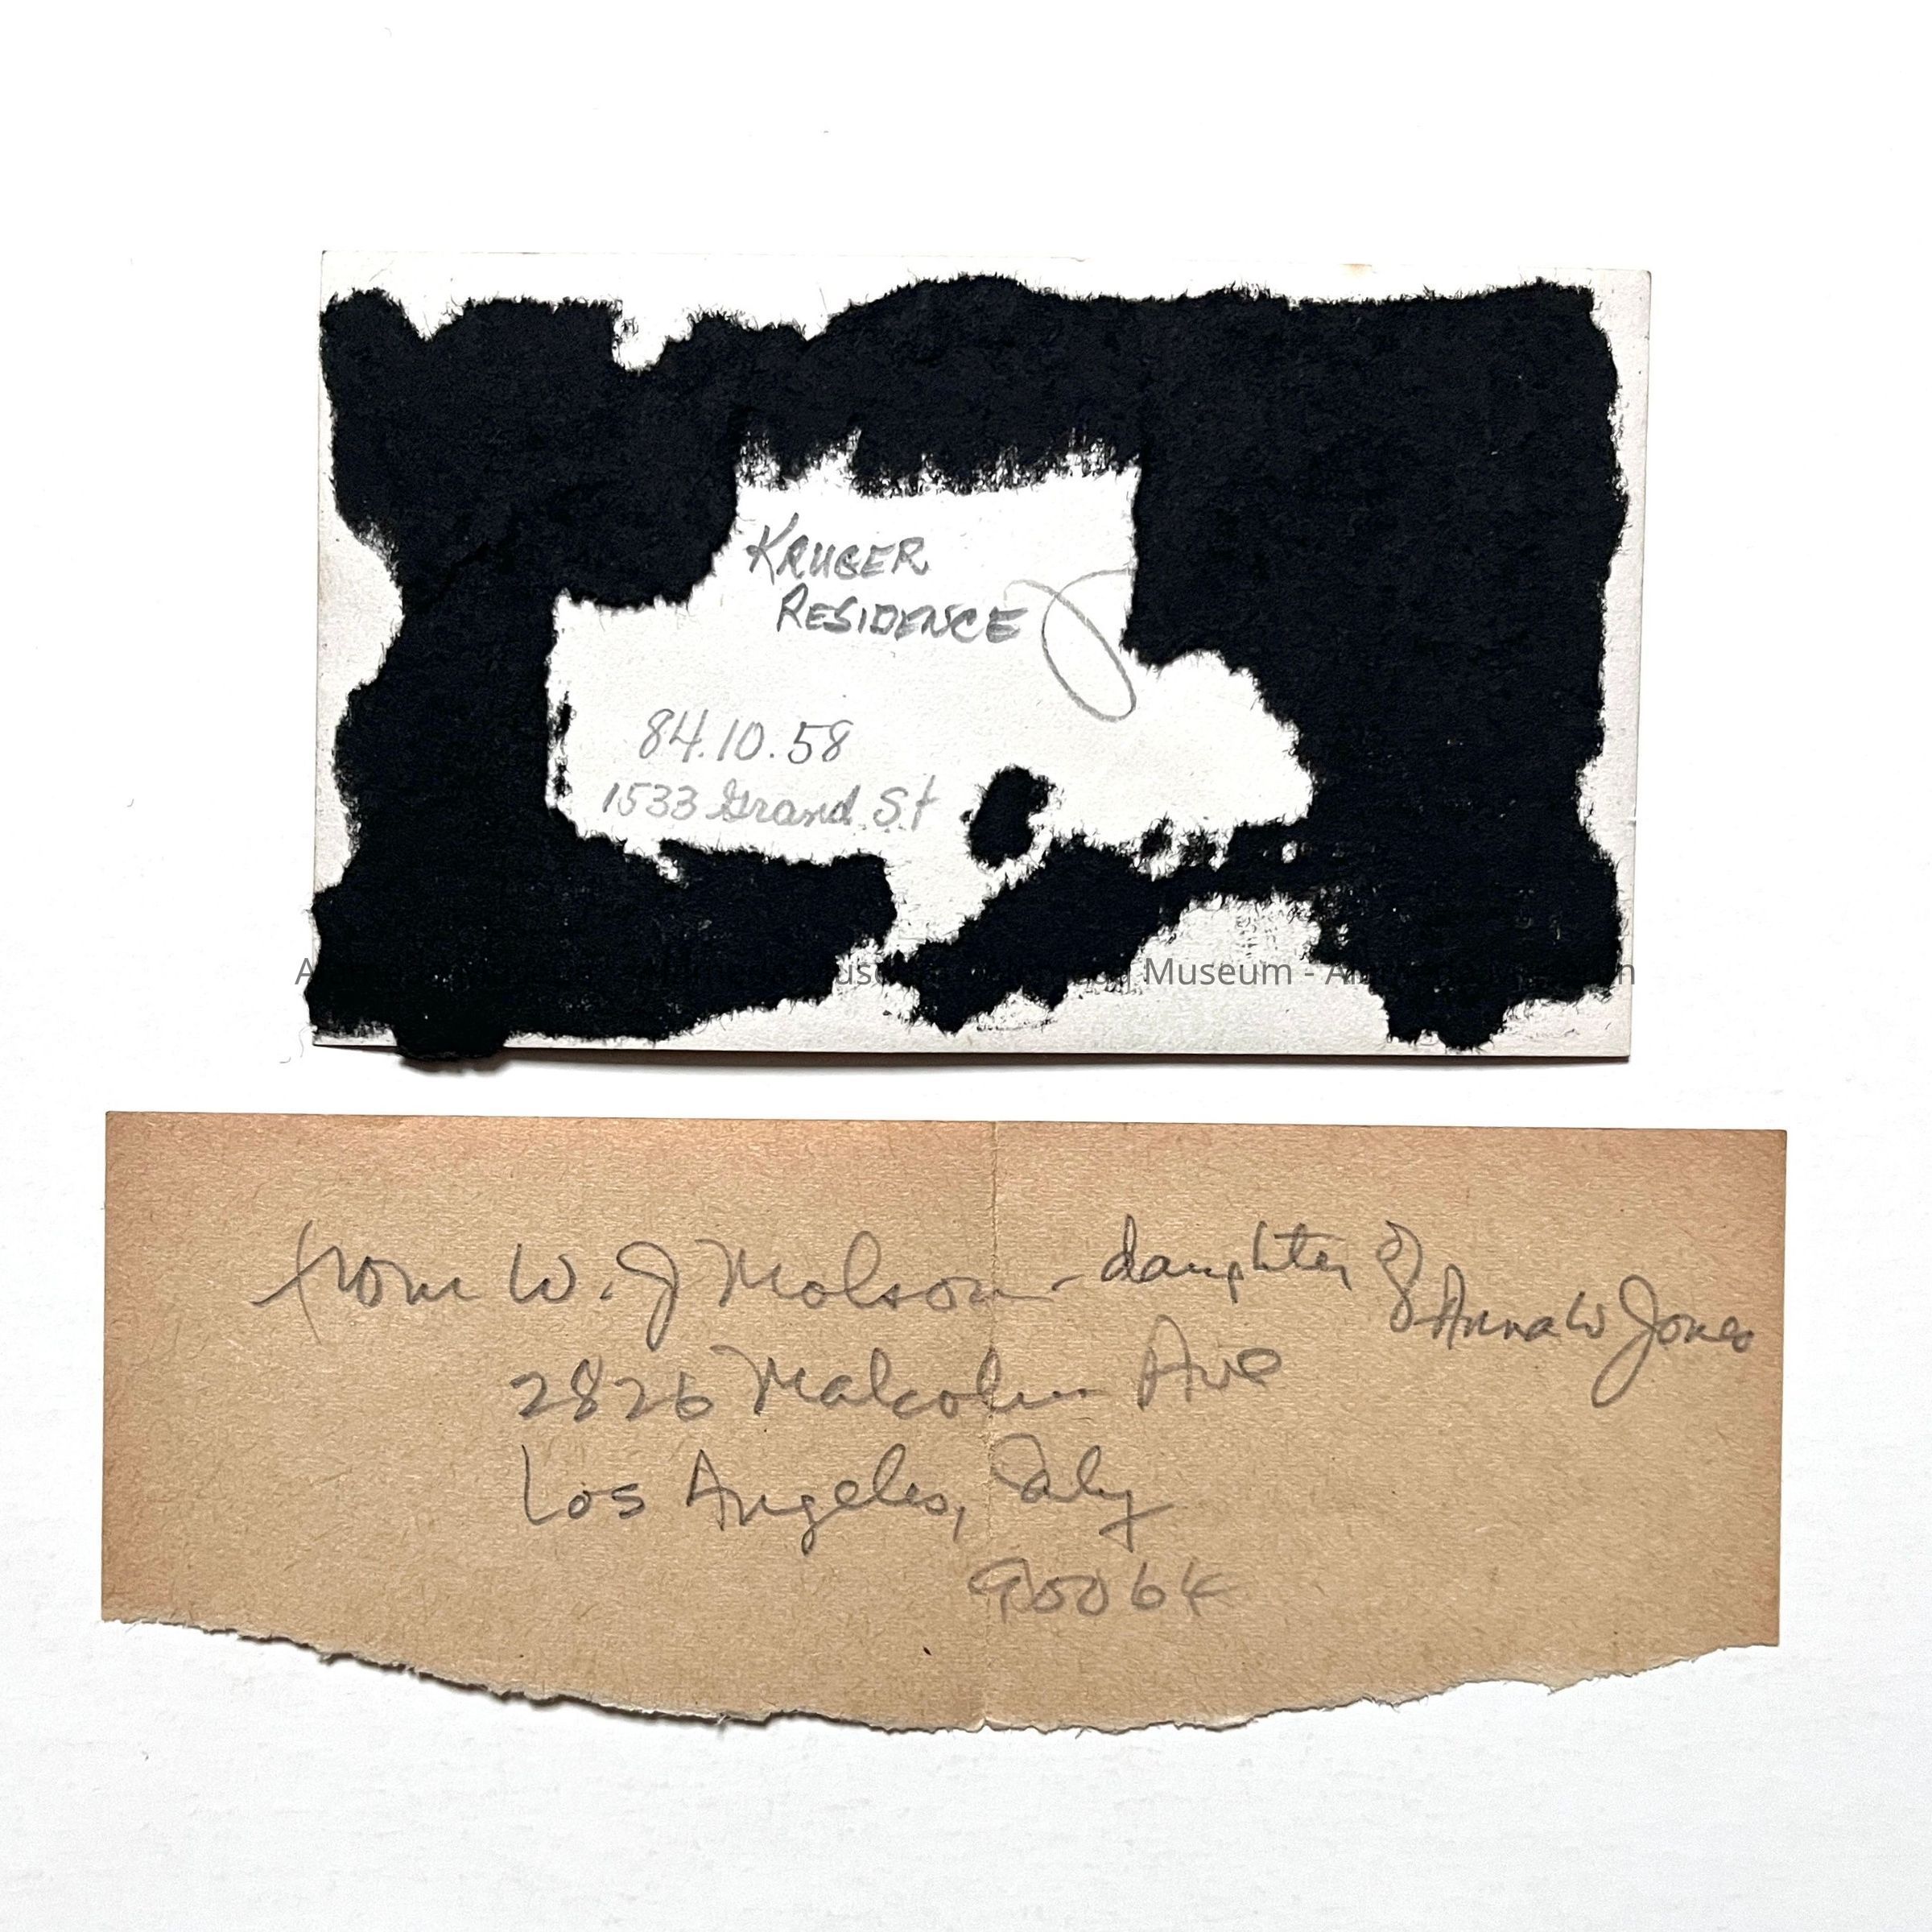 KRUGER
RESIDENCE
84.10.58
1533 Grand St
Museum -
from W. J Molson - daughter of
Anna W Jones
2826 Malcolm Ave
Los Angeles, Calif
90064